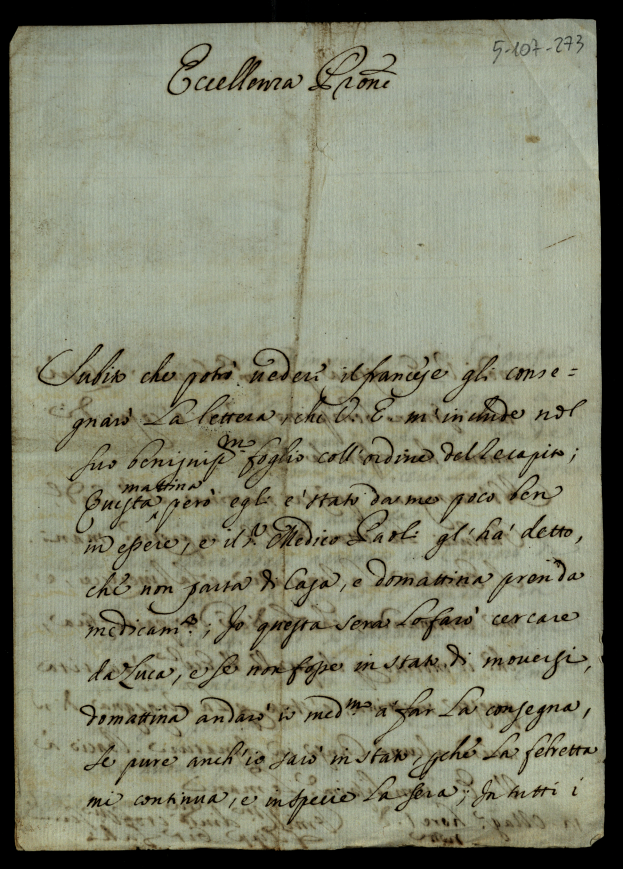 5-107-273
Eccellenza Prone
Subito che potrò vedere il francese gli conse=
gnarò La lettera, che V. E. m'inchiude nel
suo benignissmo foglio coll'ordine del recapito;
mattina
Questa però egli e' stato da me poco ben
in essere, e il Sr. Medico Paoli gl'ha' detto,
che non parta di Casa, e domattina prenda
medicamto; Io questa sera Lo farò cercare
da Luca, e se non fosse in stato di moversi,
domattina andarò io medmo a far La consegna,
se pure anch'io sarò in stato, pché La febretta
mi continua, e in specie La sera; In tutti i